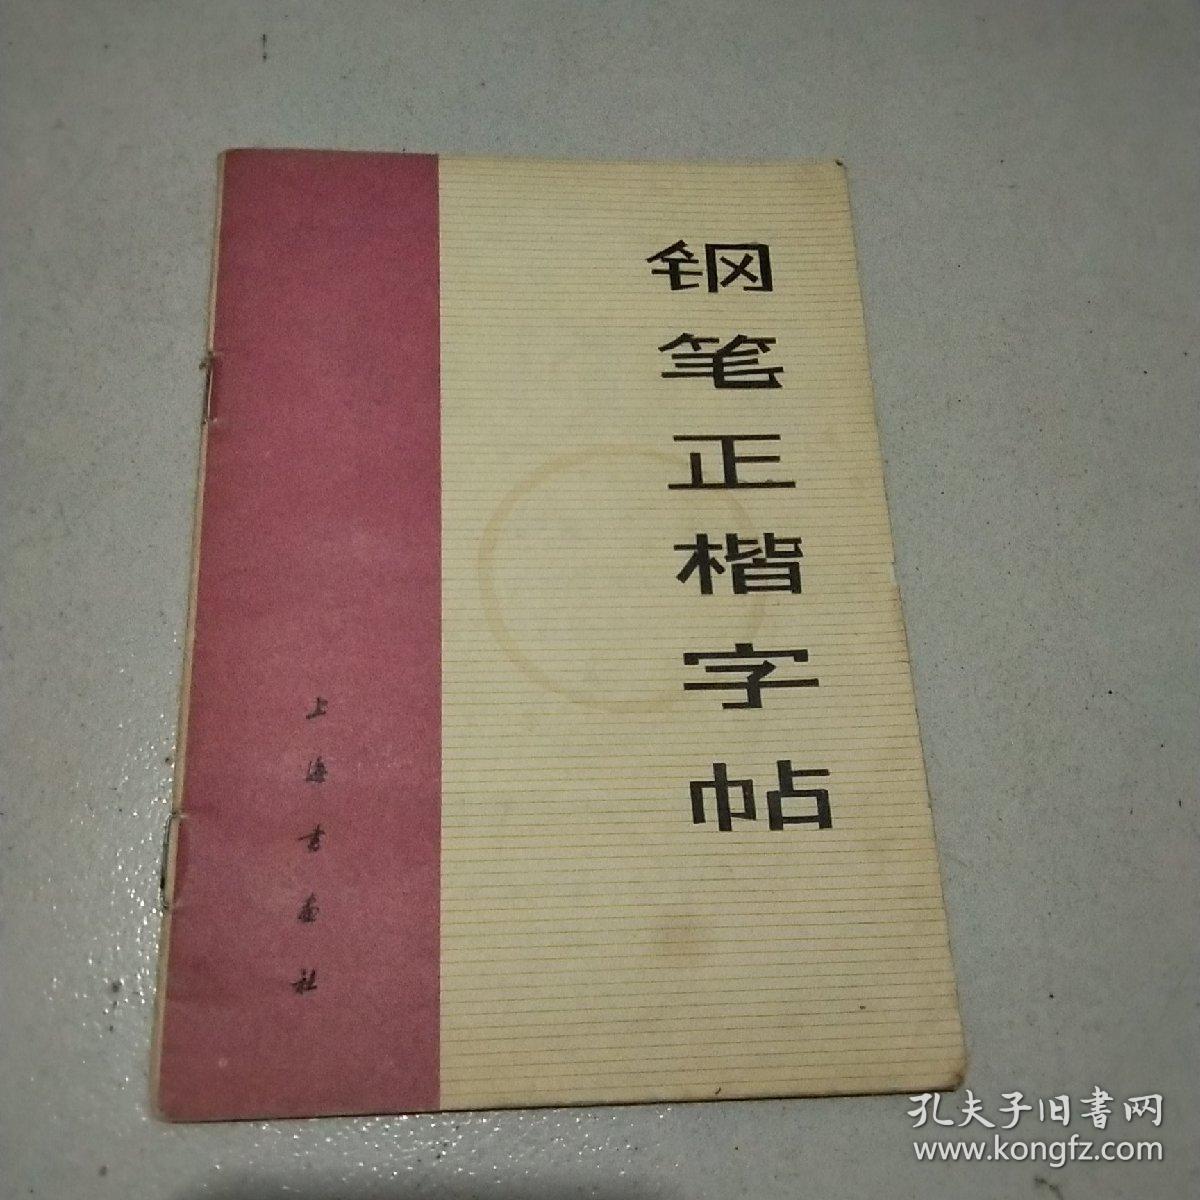 钢笔正楷字帖
上海书画社
孔夫子旧書网
www.kongfz.com